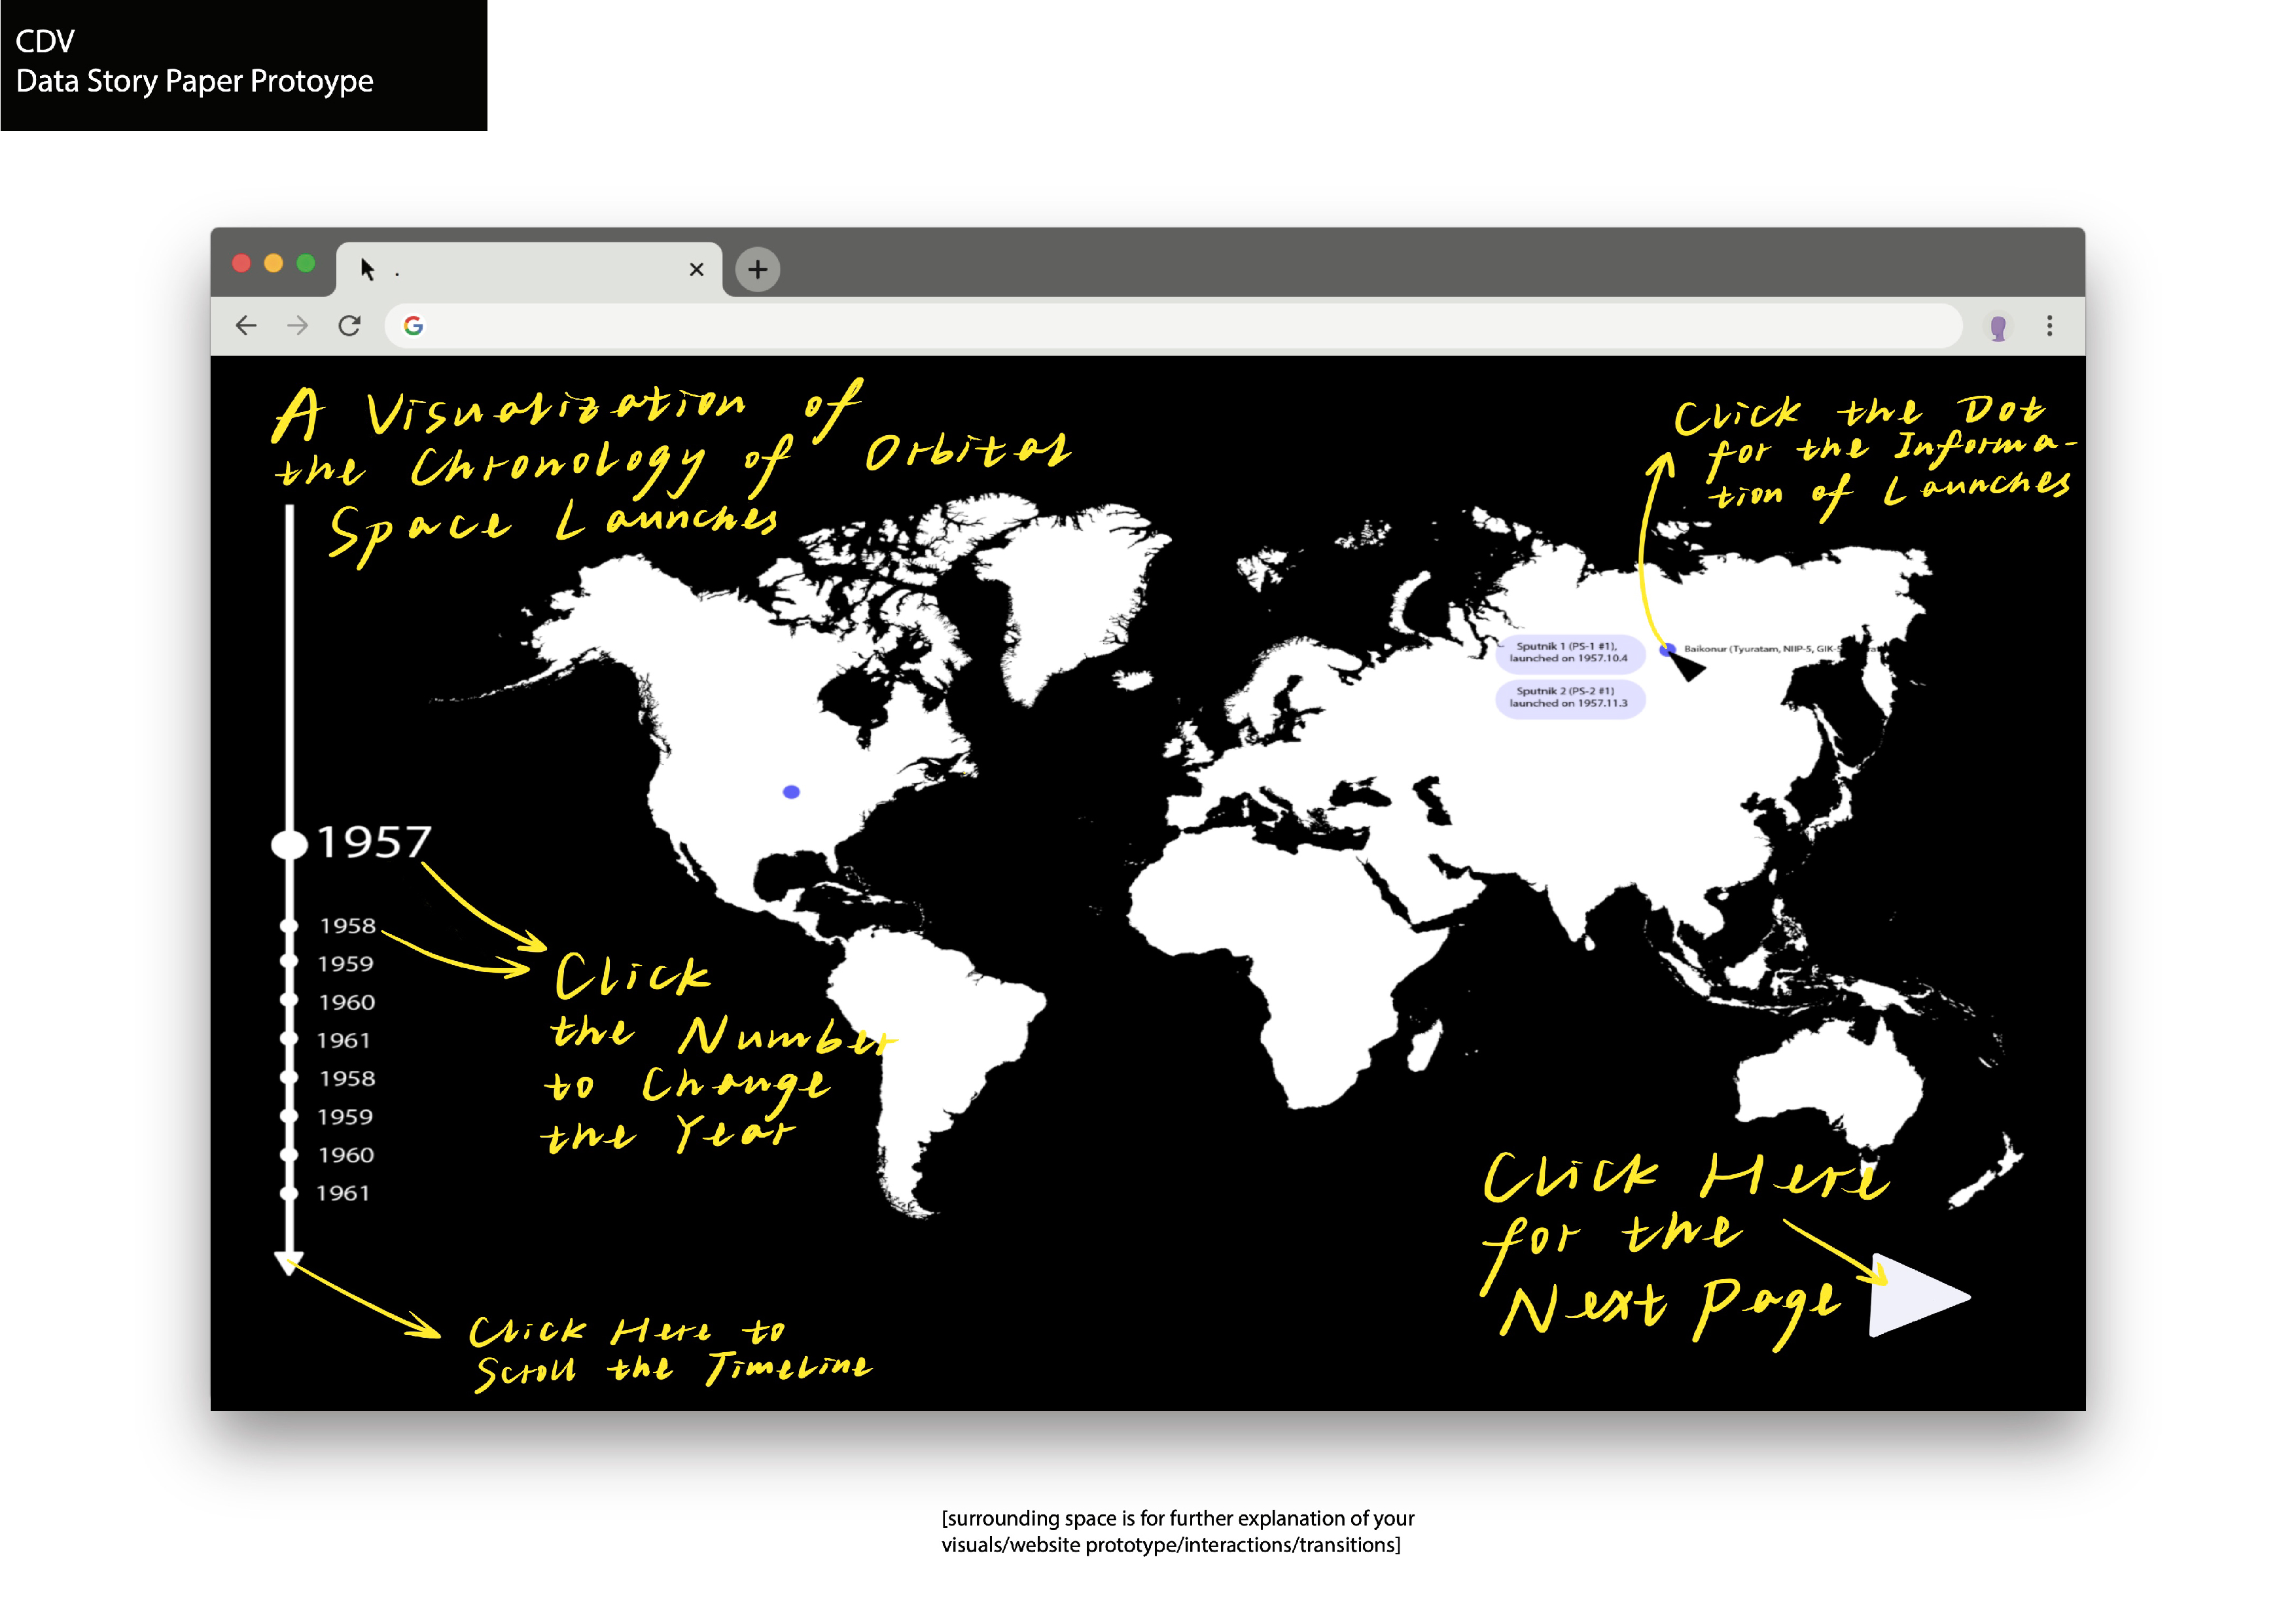 CDV
Data Story Paper Protoype
.
A Visualization of
the Chronology of Orbital
Space Launches
Click the Dot
for the Informa-
tion of Launches
Sputnik 1 (PS-1 #1),
launched on 1957.10.4
Baikonur (Tyuratam, NIIP-5, GIK-5
Sputnik 2 (PS-2 #1)
launched on 1957.11.3
1957
1958
1959
1960
1961
1958
1959
1960
1961
Click
the Number
to Change
the Year
Click Here
for the
Next Page
Click Here to
Scroll the Timeline
[surrounding space is for further explanation of your
visuals/website prototype/interactions/transitions]